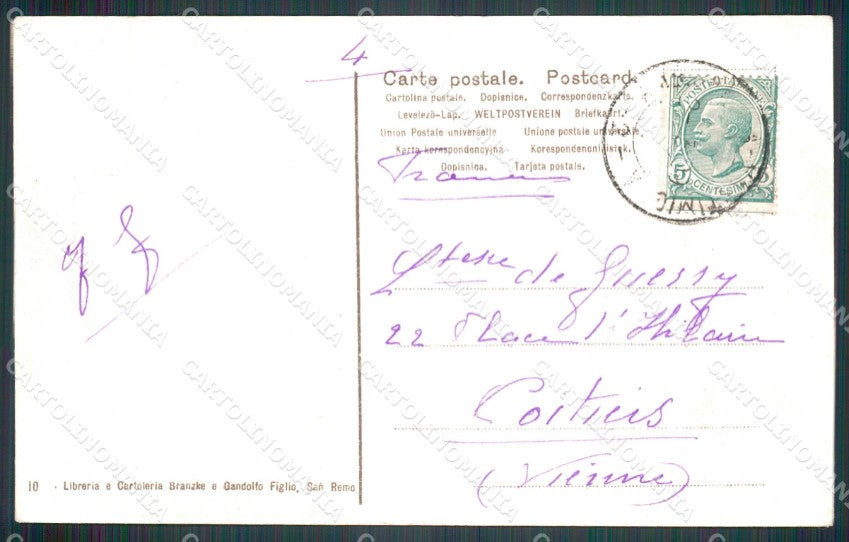 4
Carte postale. Postcard.
Cartolina postale. Dopisnice. Correspondenzkarte.
Levelezö-Lap. WELTPOSTVEREIN Briefkaart.
Union Postale universelle Unione postale universale
Karta korespondencyjna Korespondenonilistek.
Dopisnica. Tarjeta postale.
POSTE ITALIANE
5
CENTESIMI
de Guessy
22 Place St Hilaire
Poitiers
(Vienne)
10 . Libreria e Cartoleria Branzke e Gandolfo Figlio, San Remo
CARTOLINOMANIA